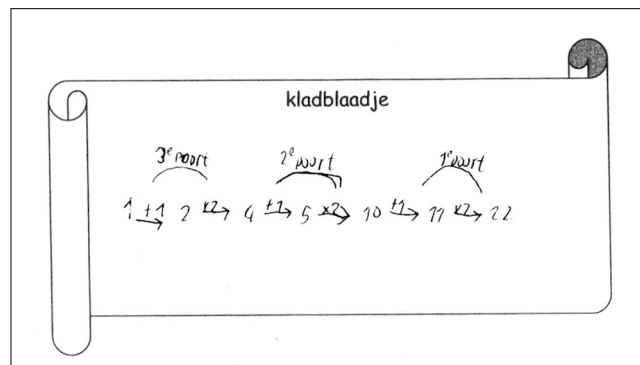 kladblaadje
3e poort 2e poort 1e poort
1 +1→ 2 x2→ 4 +1→ 5 x2→ 10 +1→ 11 x2→ 22